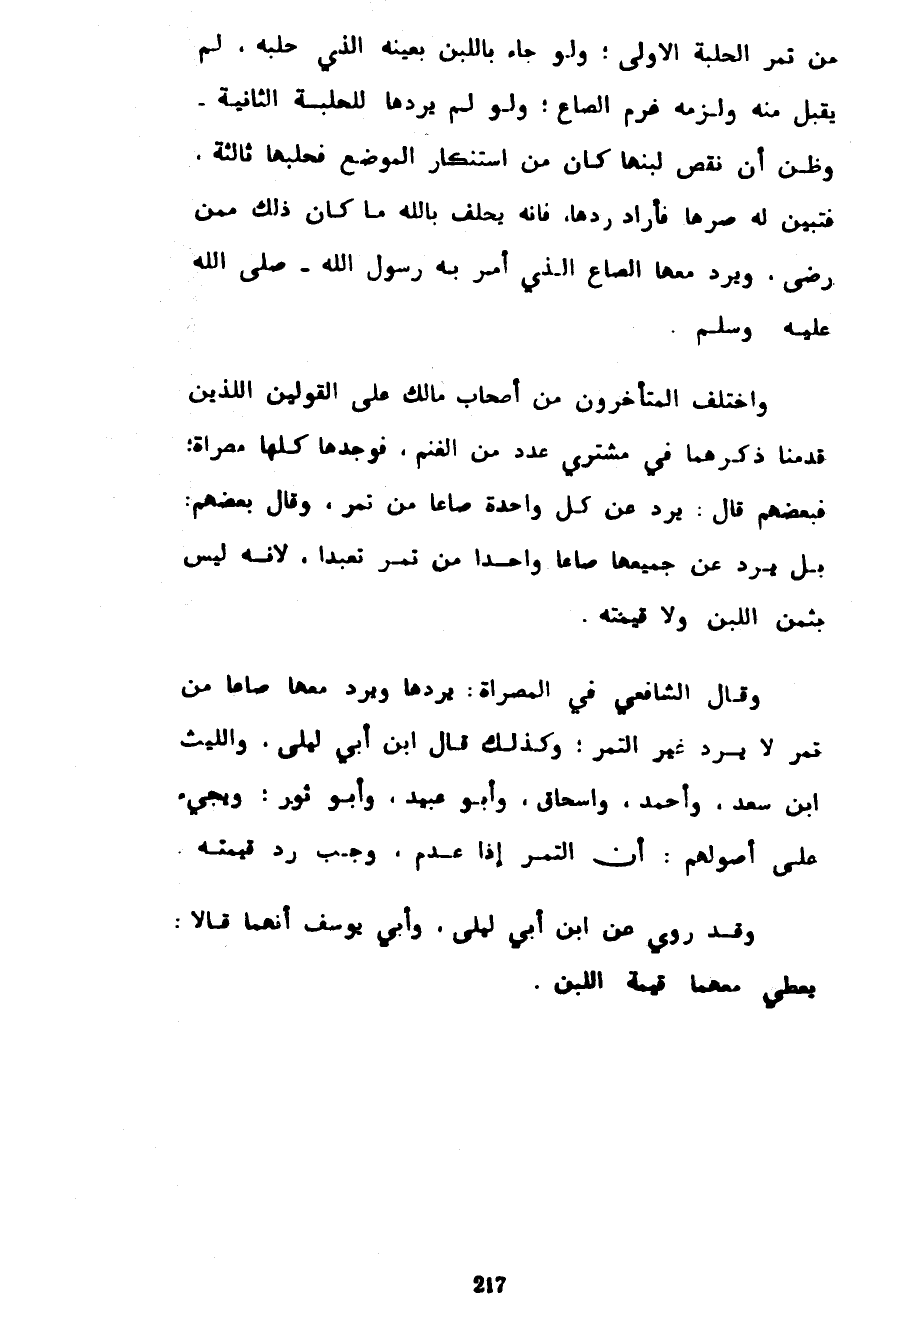 من تمر الحلبة الاولى ؛ ولو جاء باللبن بعينه الذي حلبه ، لم
يقبل منه ولزمه غرم الصاع ؛ ولو لم يردها للحلبة الثانية -
وظن أن نقص لبنها كان من استنكار الموضع فحلبها ثالثة ،
فتبين له صرها فأراد ردها، فانه يحلف بالله ما كان ذلك ممن
رضى ، ويرد معها الصاع الذي أمر به رسول الله - صلى الله
عليه وسلم .
واختلف المتأخرون من أصحاب مالك على القولين اللذين
قدمنا ذكرهما في مشتري عدد من الغنم ، فوجدها كلها مصراة؛
فبعضهم قال : يرد عن كل واحدة صاعا من تمر ، وقال بعضهم:
بل يرد عن جميعها صاعا واحدا من تمر تعبدا ، لانه ليس
بثمن اللبن ولا قيمته .
وقال الشافعي في المصراة : يردها ويرد معها صاعا من
تمر لا يرد غير التمر ؛ وكذلك قال ابن أبي ليلى ، والليث
ابن سعد ، وأحمد ، واسحاق ، وأبو عبيد ، وأبو ثور ؛ ويجيء
على أصولهم : أن التمر إذا عدم ، وجب رد قيمته .
وقد روي عن ابن أبي ليلى ، وأبي يوسف أنهما قالا :
يعطي معهما قيمة اللبن .
217